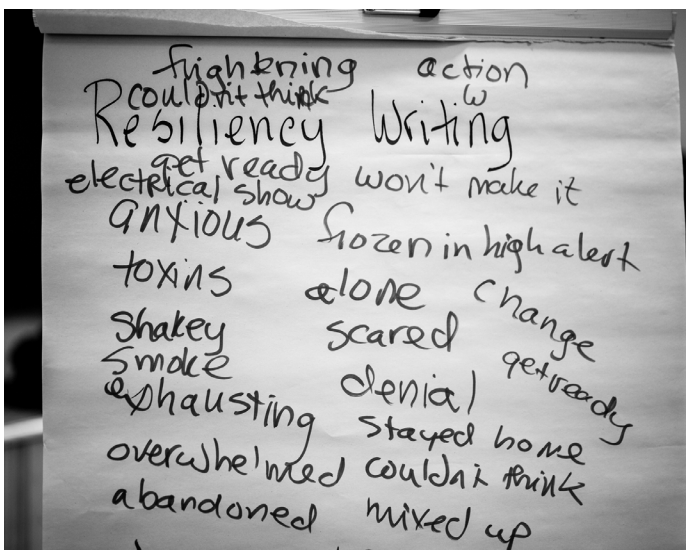 frightening action
couldn't think w
Resiliency Writing
get ready won't make it
electrical show
anxious frozen in high alert
toxins alone change
Shakey scared get ready
Smoke denial
exhausting stayed home
overwhelmed couldn't think
abandoned mixed up